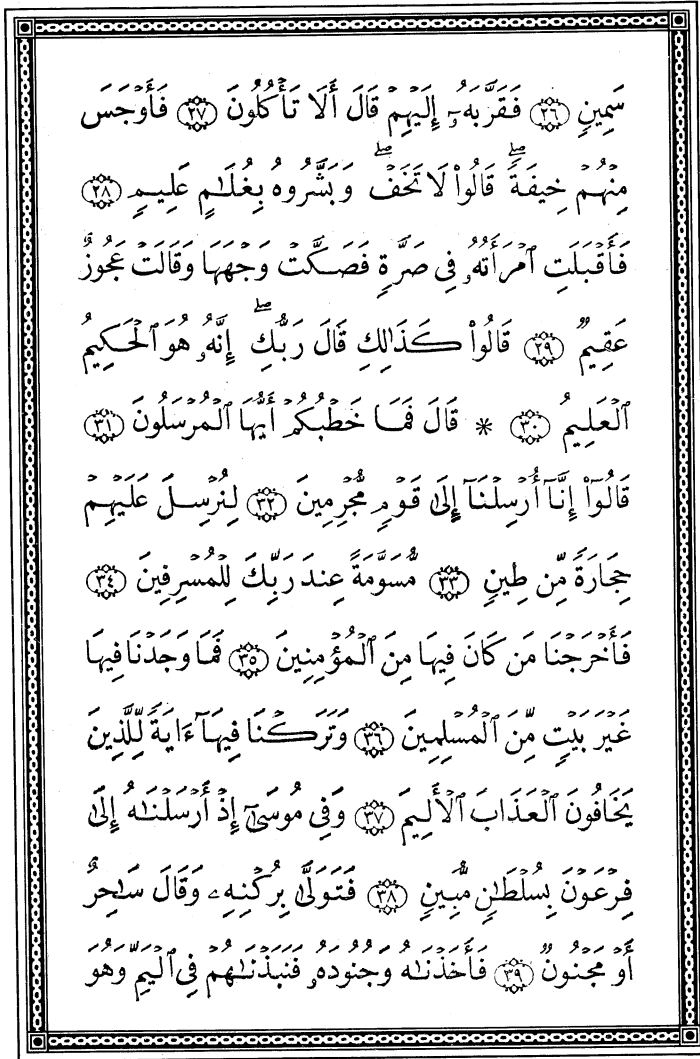 سَمِينٍ ﴿٢٦﴾ فَقَرَّبَهُۥٓ إِلَيْهِمْ قَالَ أَلَا تَأْكُلُونَ ﴿٢٧﴾ فَأَوْجَسَ
مِنْهُمْ خِيفَةً ۖ قَالُوا۟ لَا تَخَفْ ۖ وَبَشَّرُوهُ بِغُلَـٰمٍ عَلِيمٍ ﴿٢٨﴾
فَأَقْبَلَتِ ٱمْرَأَتُهُۥ فِى صَرَّةٍ فَصَكَّتْ وَجْهَهَا وَقَالَتْ عَجُوزٌ
عَقِيمٌ ﴿٢٩﴾ قَالُوا۟ كَذَٰلِكِ قَالَ رَبُّكِ ۖ إِنَّهُۥ هُوَ ٱلْحَكِيمُ
ٱلْعَلِيمُ ﴿٣٠﴾ * قَالَ فَمَا خَطْبُكُمْ أَيُّهَا ٱلْمُرْسَلُونَ ﴿٣١﴾
قَالُوٓا۟ إِنَّآ أُرْسِلْنَآ إِلَىٰ قَوْمٍ مُّجْرِمِينَ ﴿٣٢﴾ لِنُرْسِلَ عَلَيْهِمْ
حِجَارَةً مِّن طِينٍ ﴿٣٣﴾ مُّسَوَّمَةً عِندَ رَبِّكَ لِلْمُسْرِفِينَ ﴿٣٤﴾
فَأَخْرَجْنَا مَن كَانَ فِيهَا مِنَ ٱلْمُؤْمِنِينَ ﴿٣٥﴾ فَمَا وَجَدْنَا فِيهَا
غَيْرَ بَيْتٍ مِّنَ ٱلْمُسْلِمِينَ ﴿٣٦﴾ وَتَرَكْنَا فِيهَآ ءَايَةً لِّلَّذِينَ
يَخَافُونَ ٱلْعَذَابَ ٱلْأَلِيمَ ﴿٣٧﴾ وَفِى مُوسَىٰٓ إِذْ أَرْسَلْنَـٰهُ إِلَىٰ
فِرْعَوْنَ بِسُلْطَـٰنٍ مُّبِينٍ ﴿٣٨﴾ فَتَوَلَّىٰ بِرُكْنِهِۦ وَقَالَ سَـٰحِرٌ
أَوْ مَجْنُونٌ ﴿٣٩﴾ فَأَخَذْنَـٰهُ وَجُنُودَهُۥ فَنَبَذْنَـٰهُمْ فِى ٱلْيَمِّ وَهُوَ